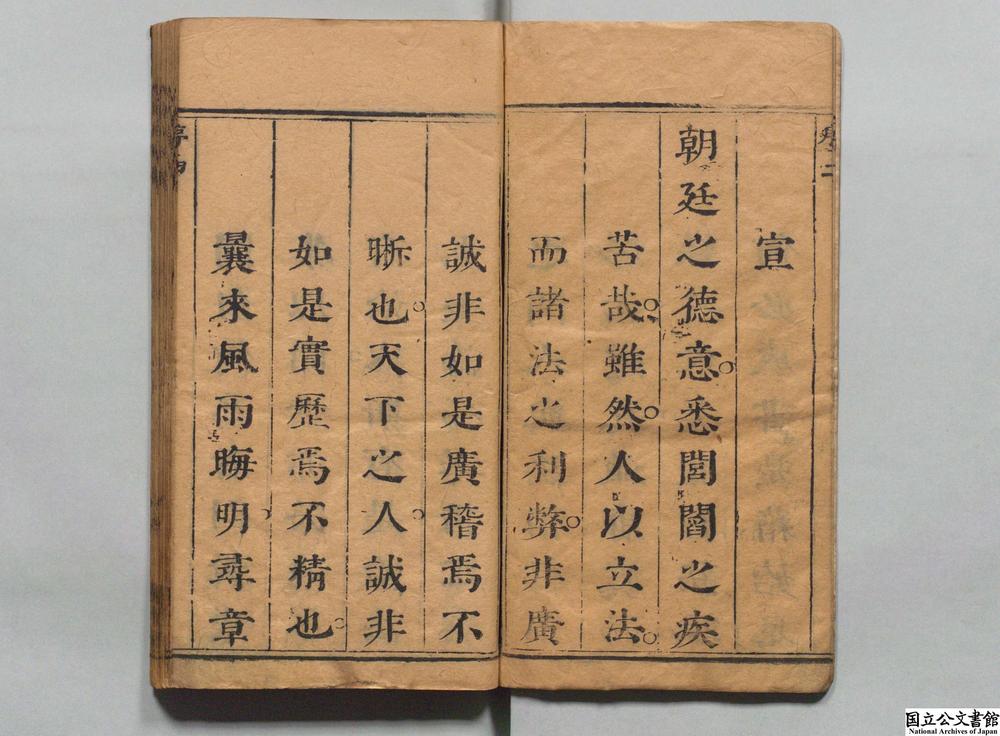 宣
朝廷之德意。悉閭閻之疾
苦哉。雖然。人以立法。
而諸法之利弊。非廣
誠非如是廣稽焉不
晰也。天下之人。誠非
如是實歷焉不精也。
曩來風雨晦明、尋章
国立公文書館
National Archives of Japan